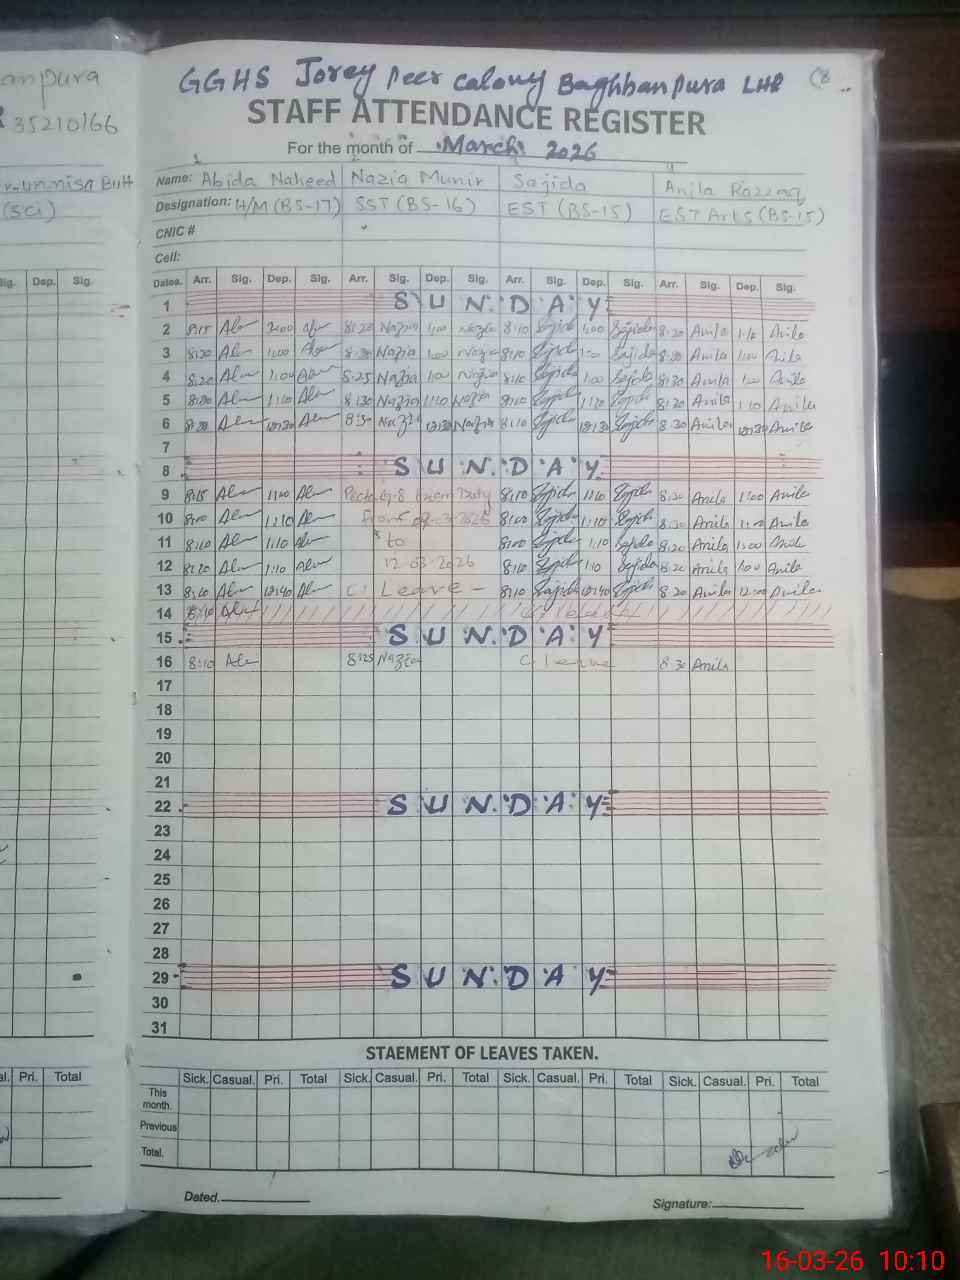 GGHS Jorey Peer Calony Baghbanpura LHR
STAFF ATTENDANCE REGISTER
For the month of March 2026
Name: Abida Naheed Nazia Munir Sajida Anila Razzaq
Designation: H/M (BS-17) SST (BS-16) EST (BS-15) EST Arts (BS-15)
CNIC #
Cell:
Dates. Arr. Sig. Dep. Sig. Arr. Sig. Dep. Sig. Arr. Sig. Dep. Sig. Arr. Sig. Dep. Sig.
1 SUNDAY
2 8:15 8:20 Nazia 1:00 Nazia 8:10 Sajida 1:00 Sajida 8:20 Anila 1:10 Anila
3 8:20 1:00 8:30 Nazia 1:00 Nazia 8:10 Sajida Sajida 8:30 Anila 1:00 Anila
4 8:20 1:00 8:25 Nazia 1:00 Nazia 8:10 Sajida 1:00 Sajida 8:30 Anila 1:00 Anila
5 1:10 8:30 Nazia 1:10 Nazia Sajida 1:10 Sajida 8:20 Anila 1:10 Anila
6 12:30 8:30 Nazia 12:30 Nazia 8:10 Sajida 12:30 Sajida 8:30 Anila 12:30 Anila
7
8 SUNDAY
9 8:15 1:00 Exam Duty 8:10 Sajida 1:10 Sajida 8:20 Anila 1:00 Anila
10 1:10 From 03-2026 8:00 Sajida 1:10 Sajida 8:20 Anila Anila
11 8:10 1:10 to 8:00 Sajida 1:10 Sajida 8:20 Anila 1:00 Anila
12 8:20 1:10 12-03-2026 8:10 Sajida 1:10 Sajida 8:20 Anila 1:00 Anila
13 8:20 12:40 C. Leave - 8:10 Sajida 12:40 Sajida 8:20 Anila 12:00 Anila
14 8:10
15 SUNDAY
16 8:10 8:25 Nazia C. leave 8:30 Anila
17
18
19
20
21
22 SUNDAY
23
24
25
26
27
28
29 SUNDAY
30
31
STAEMENT OF LEAVES TAKEN.
Sick. Casual. Pri. Total Sick. Casual. Pri. Total Sick. Casual. Pri. Total Sick. Casual. Pri. Total
This month.
Previous
Total.
Dated.
Signature:
anpura
35210166
r-unnisa Butt
(Sci)
Sig. Dep. Sig.
al. Pri. Total
16-03-26 10:10